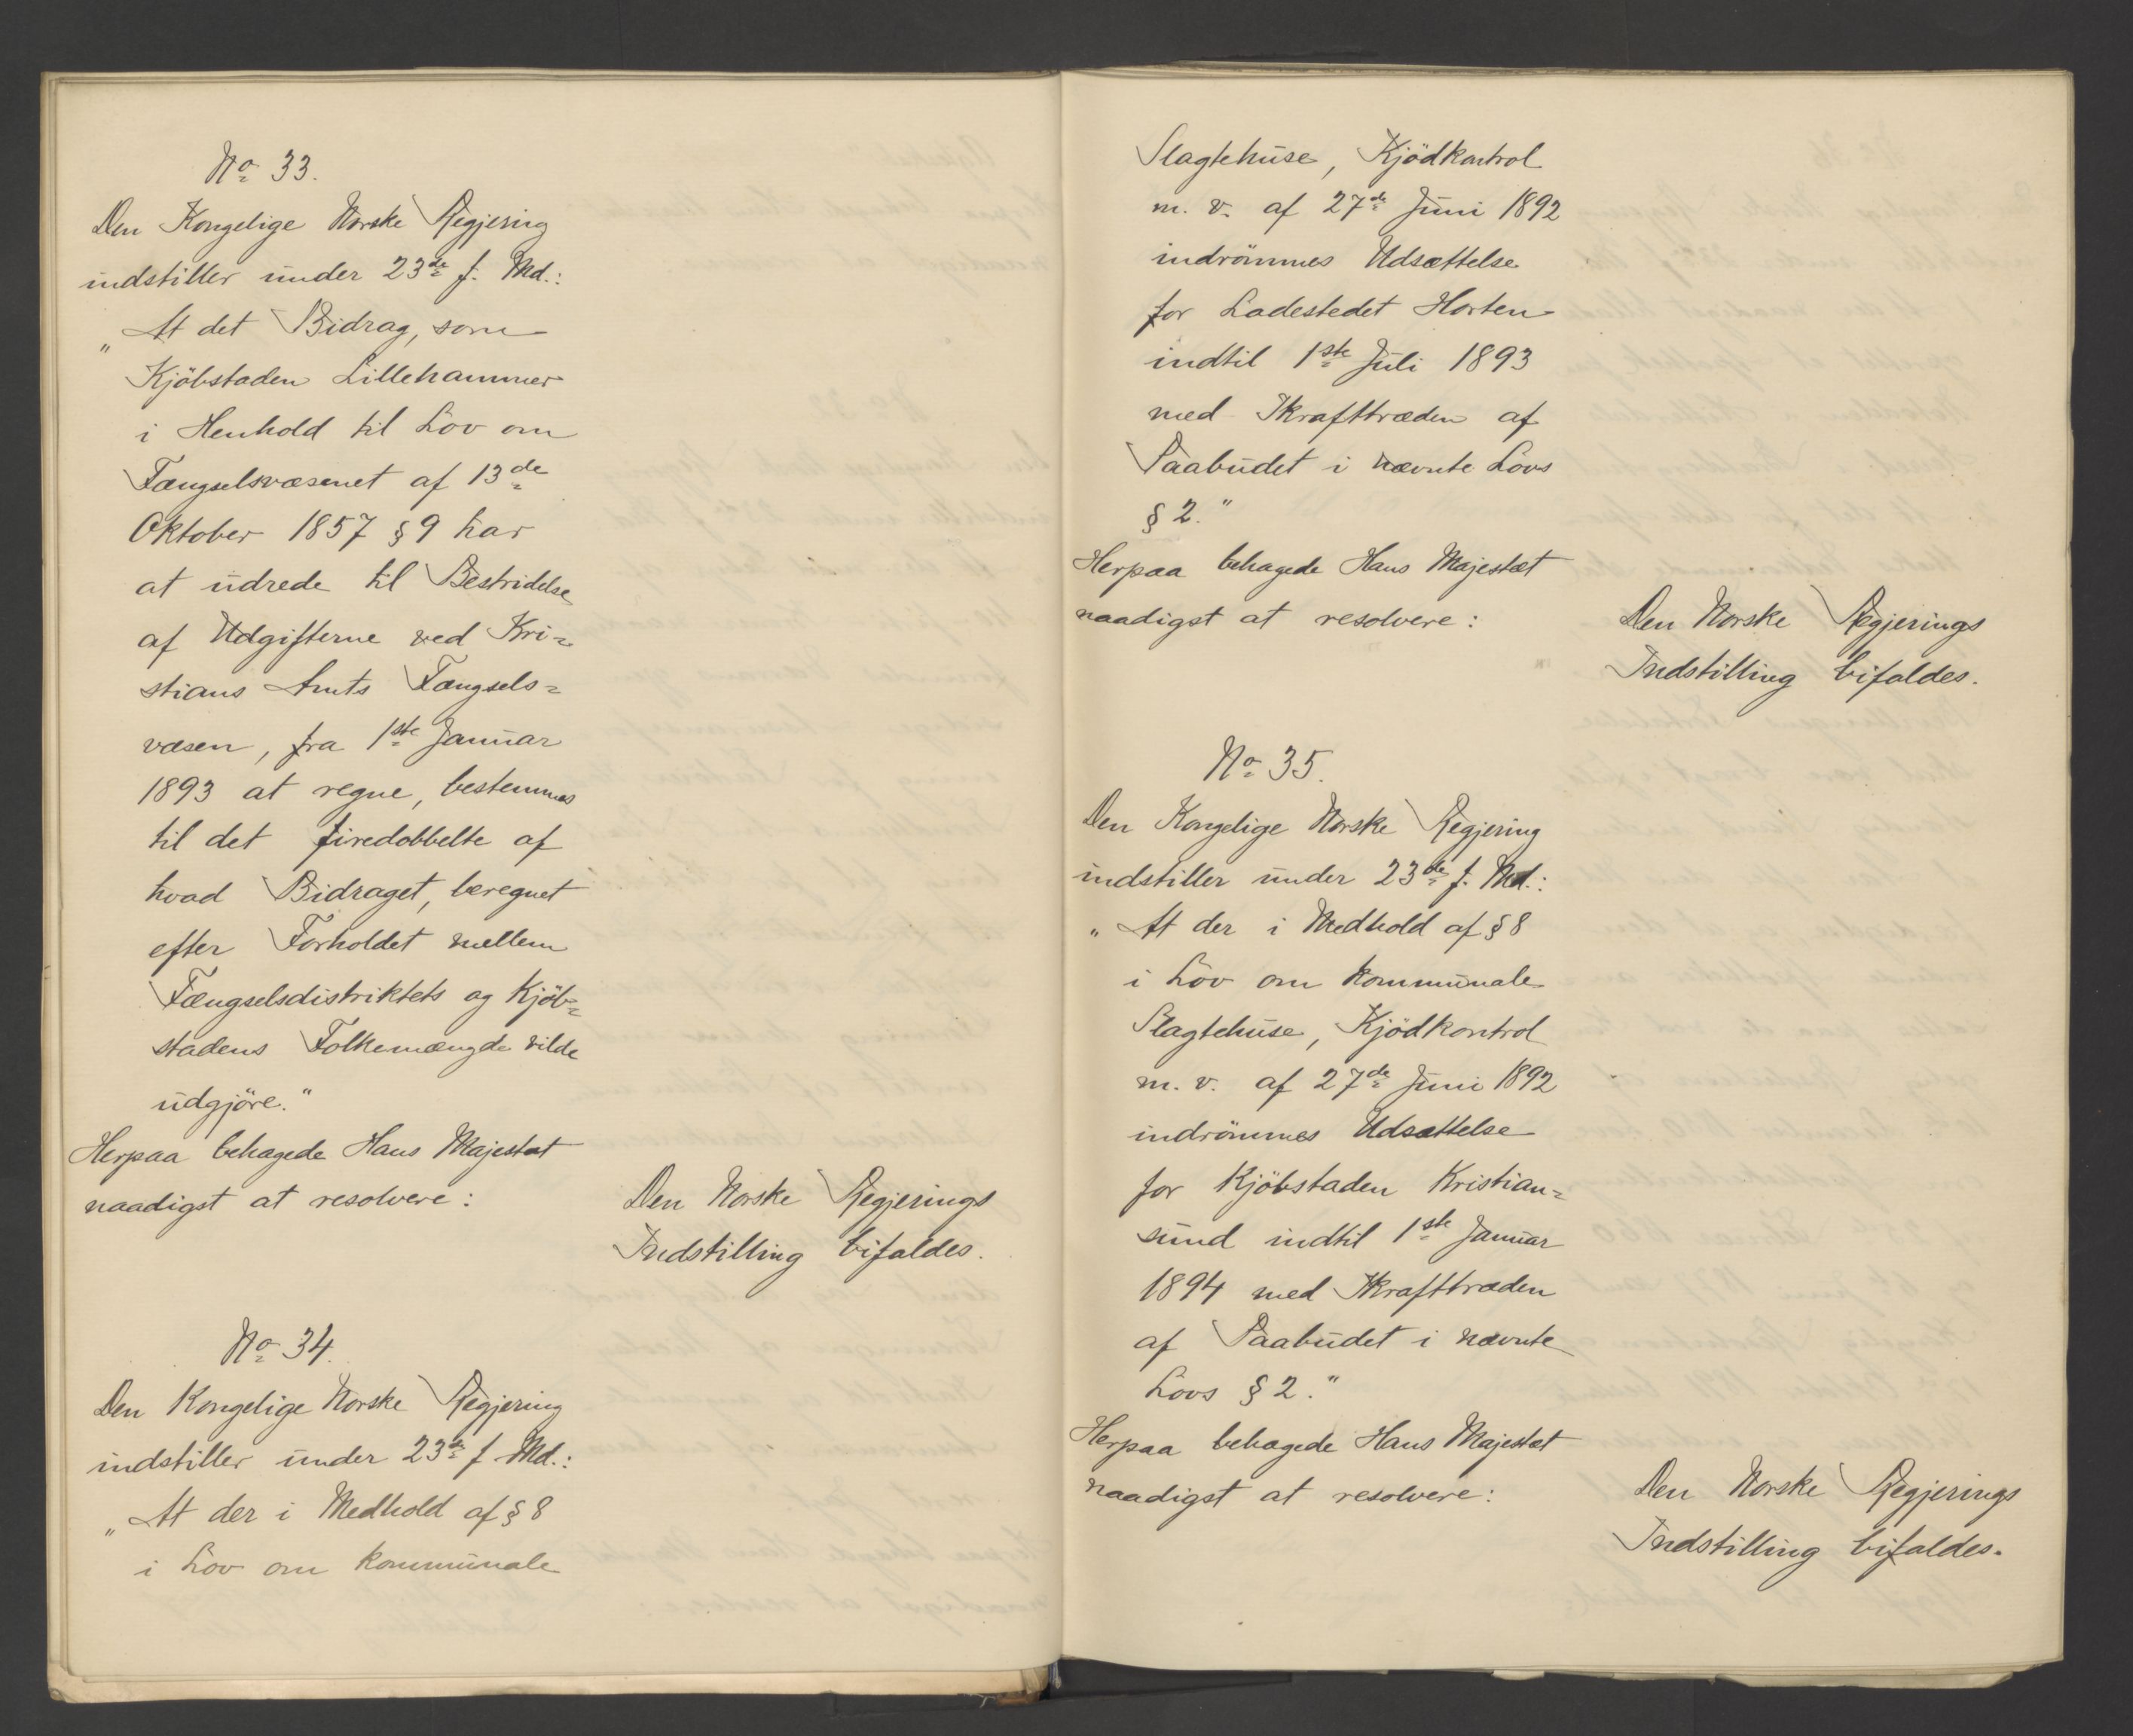 No 33.
Den Kongelige Norske Regjering
indstiller under 23de f. Md.:
„At det Bidrag, som
Kjöbstaden Lillehammer
i Henhold til Lov om
Fængselsvæsenet af 13de
Oktober 1857 § 9 har
at udrede til Bestridelse
af Udgifterne ved Kri=
stians Amts Fængsels=
væsen, fra 1ste Januar
1893 at regne, bestemmes
til det firedobbelte af
hvad Bidraget, beregnet
efter Forholdet mellem
Fængselsdistriktets og Kjöb=
stadens Folkemængde vilde
udgjöre."
Herpaa behagede Hans Majestæt
naadigst at resolvere:
Den Norske Regjerings
Indstilling bifaldes.
No 34.
Den Kongelige Norske Regjering
indstiller under 23de f. Md.:
„At der i Medhold af § 8
i Lov om kommunale
Slagtehuse, Kjödkontrol
m. v. af 27de Juni 1892
indrömmes Udsættelse
for Ladestedet Horten
indtil 1ste Juli 1893
med Ikrafttræden af
Paabudet i nævnte Lovs
§ 2."
Herpaa behagede Hans Majestæt
naadigst at resolvere:
Den Norske Regjerings
Indstilling bifaldes.
No 35.
Den Kongelige Norske Regjering
indstiller under 23de f. Md.:
„At der i Medhold af § 8
i Lov om kommunale
Slagtehuse, Kjödkontrol
m. v. af 27de Juni 1892
indrömmes Udsættelse
for Kjöbstaden Kristian=
sund indtil 1ste Januar
1894 med Ikrafttræden
af Paabudet i nævnte
Lovs § 2."
Herpaa behagede Hans Majestæt
naadigst at resolvere:
Den Norske Regjerings
Indstilling bifaldes.